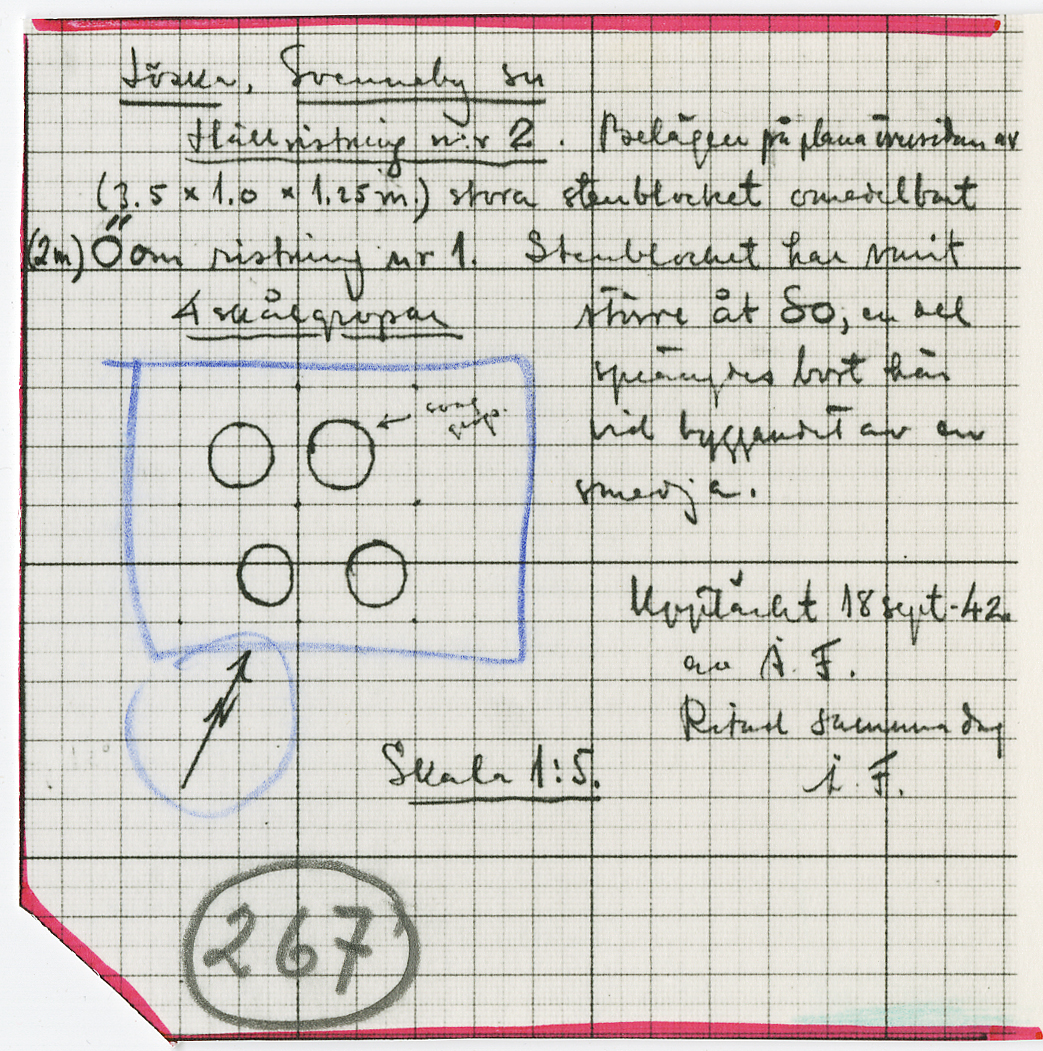 Löska, Svenneby sn
Hällristning n:r 2. Belägen på plana översidan av
(3.5 × 1.0 × 1.25 m.) stora stenblocket omedelbart
(2m) Ö om ristning nr 1. Stenblocket har varit
4 skålgropar
större åt SO, en del
sprängdes bort här
vid byggandet av en
smedja.
Upptäckt 18 sept-42.
av Å. F.
Ritad samma dag
Å. F.
N
Skala 1:5.
267